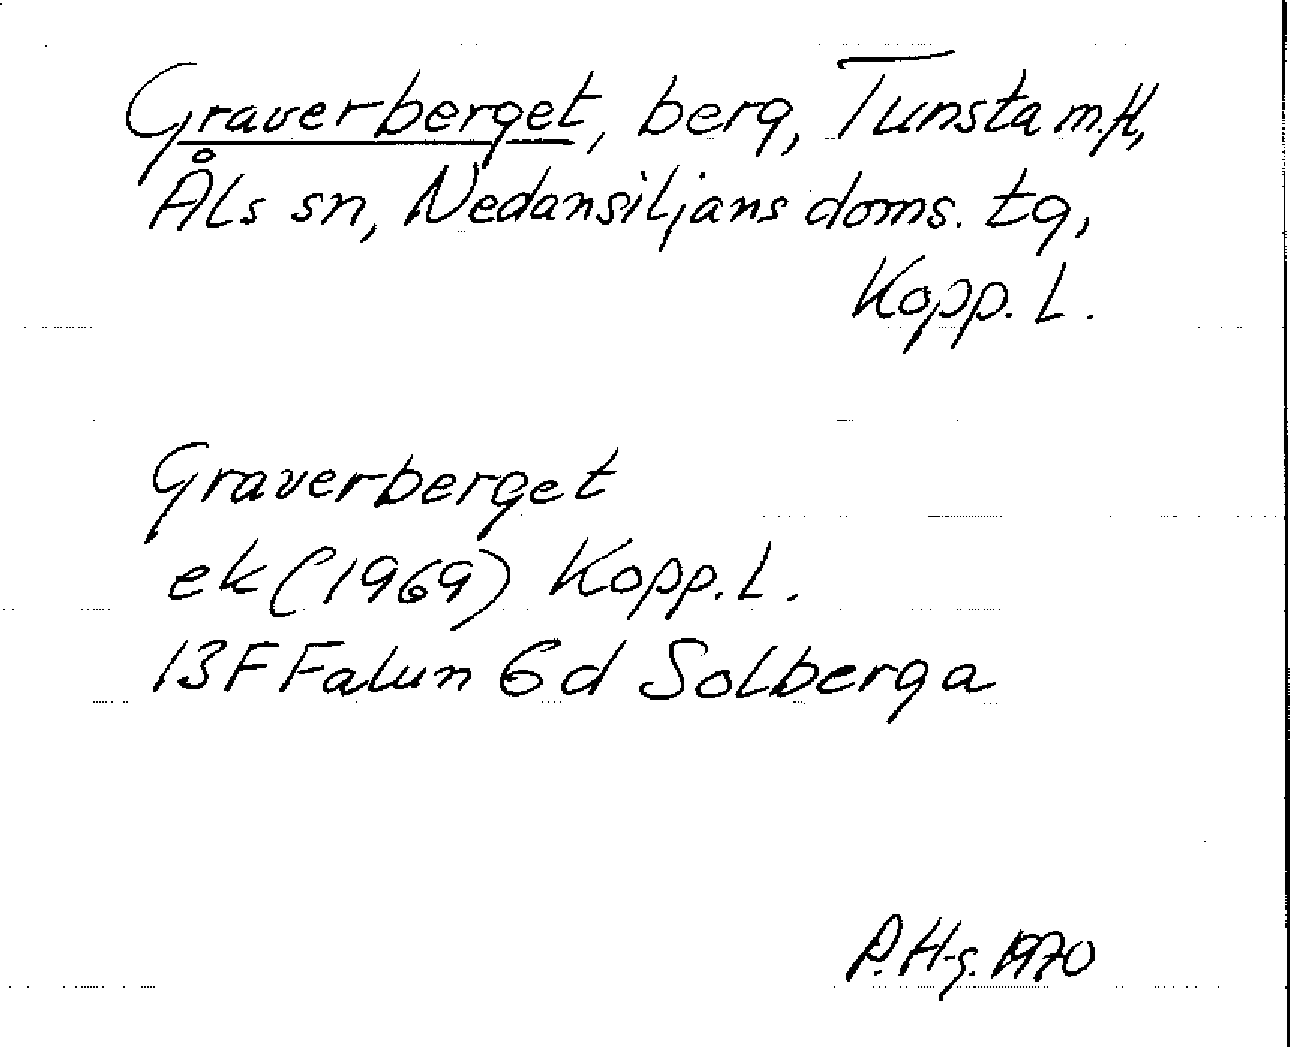 Graverberget, berg, Tunsta m.fl,
Åls sn, Nedansiljans doms. tg,
Kopp. L.
Graverberget
ek (1969) Kopp. L.
13F Falun 6d Solberga
P. H-g. 1970